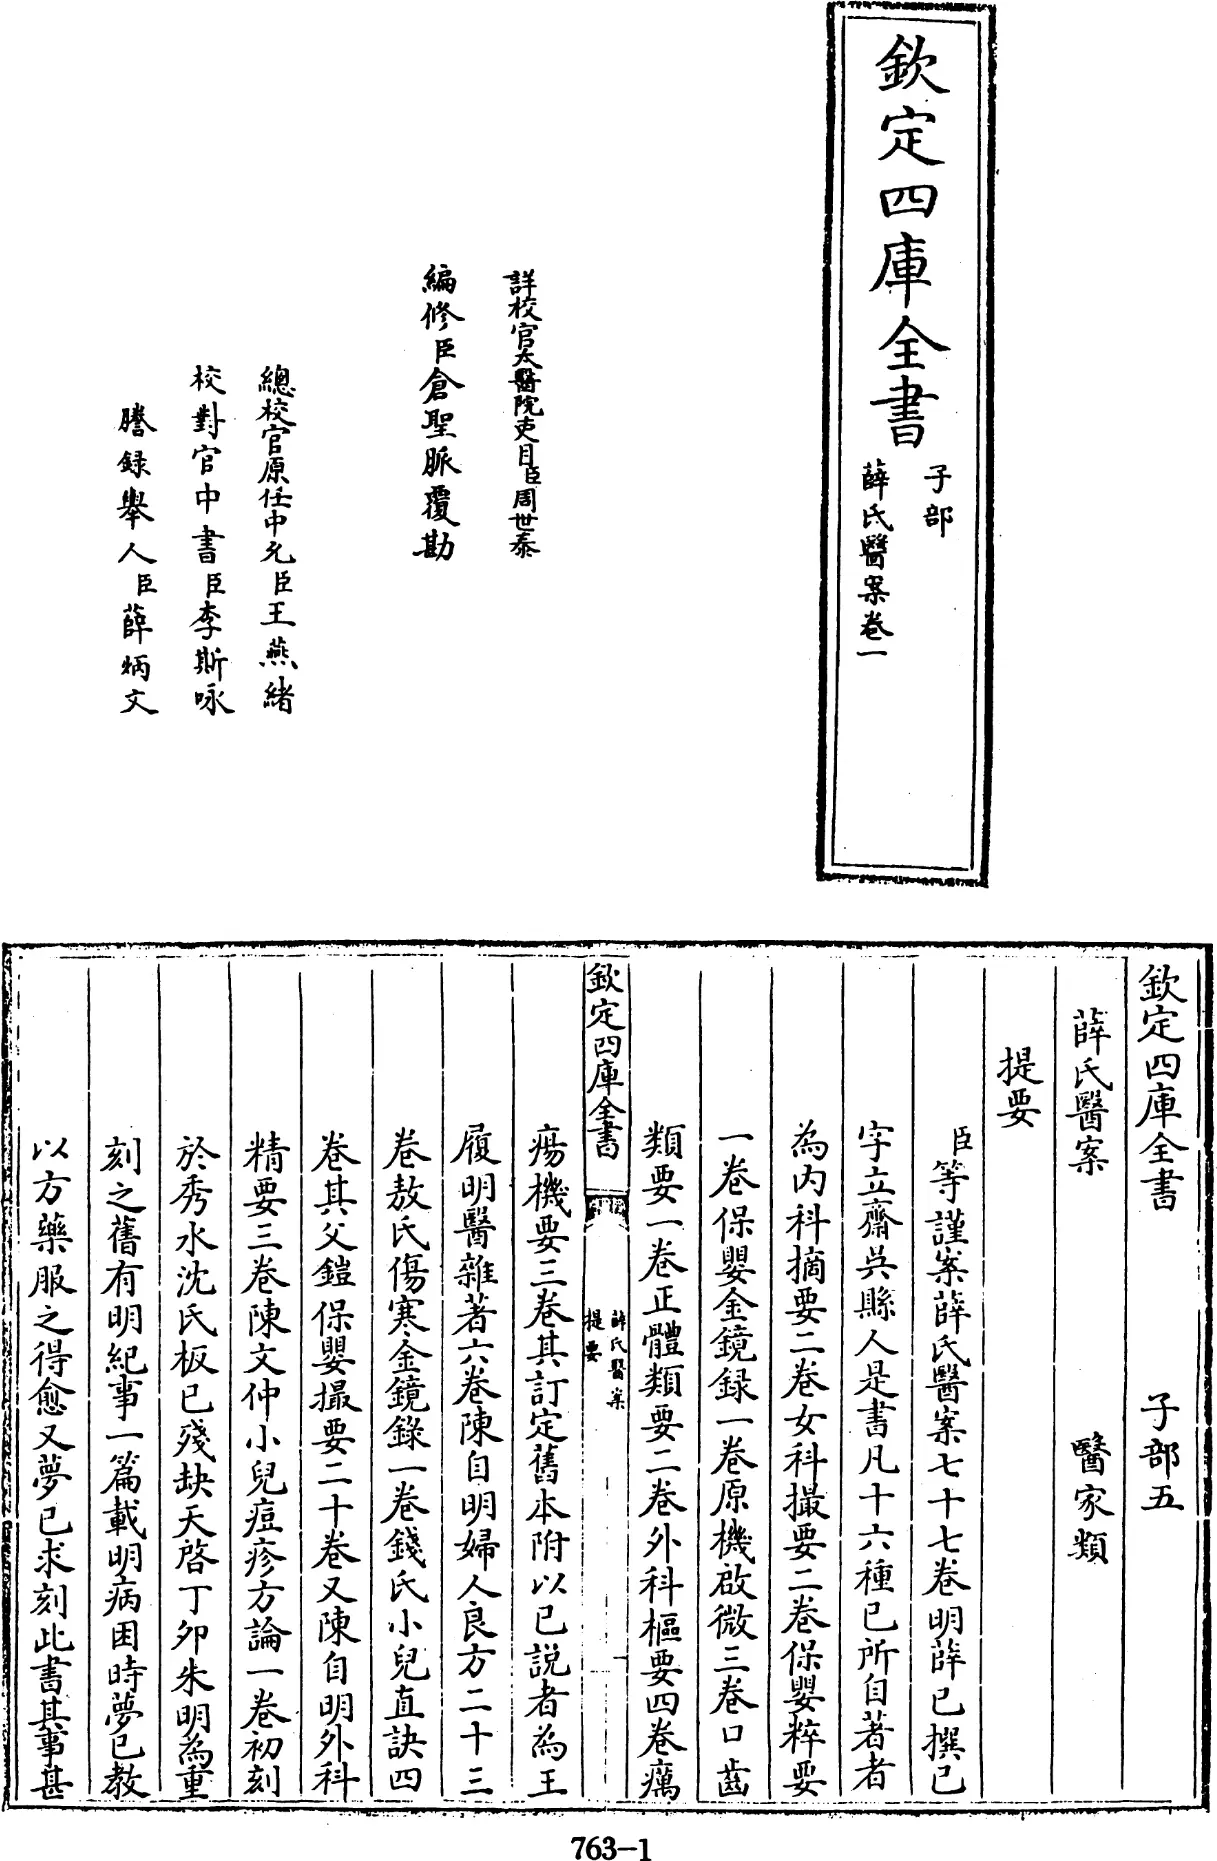 欽定四庫全書
子部
薛氏醫案卷一
詳校官太醫院吏目臣周世泰
編修臣倉聖脈覆勘
總校官原任中允臣王燕緒
校對官中書臣李斯咏
謄錄舉人臣薛炳文
欽定四庫全書 子部五
薛氏醫案 醫家類
提要
臣等謹案薛氏醫案七十七卷明薛己撰己
字立齋吳縣人是書凡十六種己所自著者
為内科摘要二卷女科撮要二卷保嬰粹要
一卷保嬰金鏡録一卷原機啟微三卷口齒
類要一卷正體類要二卷外科樞要四卷癘
瘍機要三卷其訂定舊本附以己説者為王
履明醫雜著六卷陳自明婦人良方二十三
卷敖氏傷寒金鏡錄一卷錢氏小兒直訣四
卷其父鎧保嬰撮要二十卷又陳自明外科
精要三卷陳文仲小兒痘疹方論一卷初刻
於秀水沈氏板已殘缺天啓丁卯朱明為重
刻之舊有明紀事一篇載明病困時夢己教
以方藥服之得愈又夢己求刻此書其事甚
欽定四庫全書
薛氏醫案
提要
一
763-1